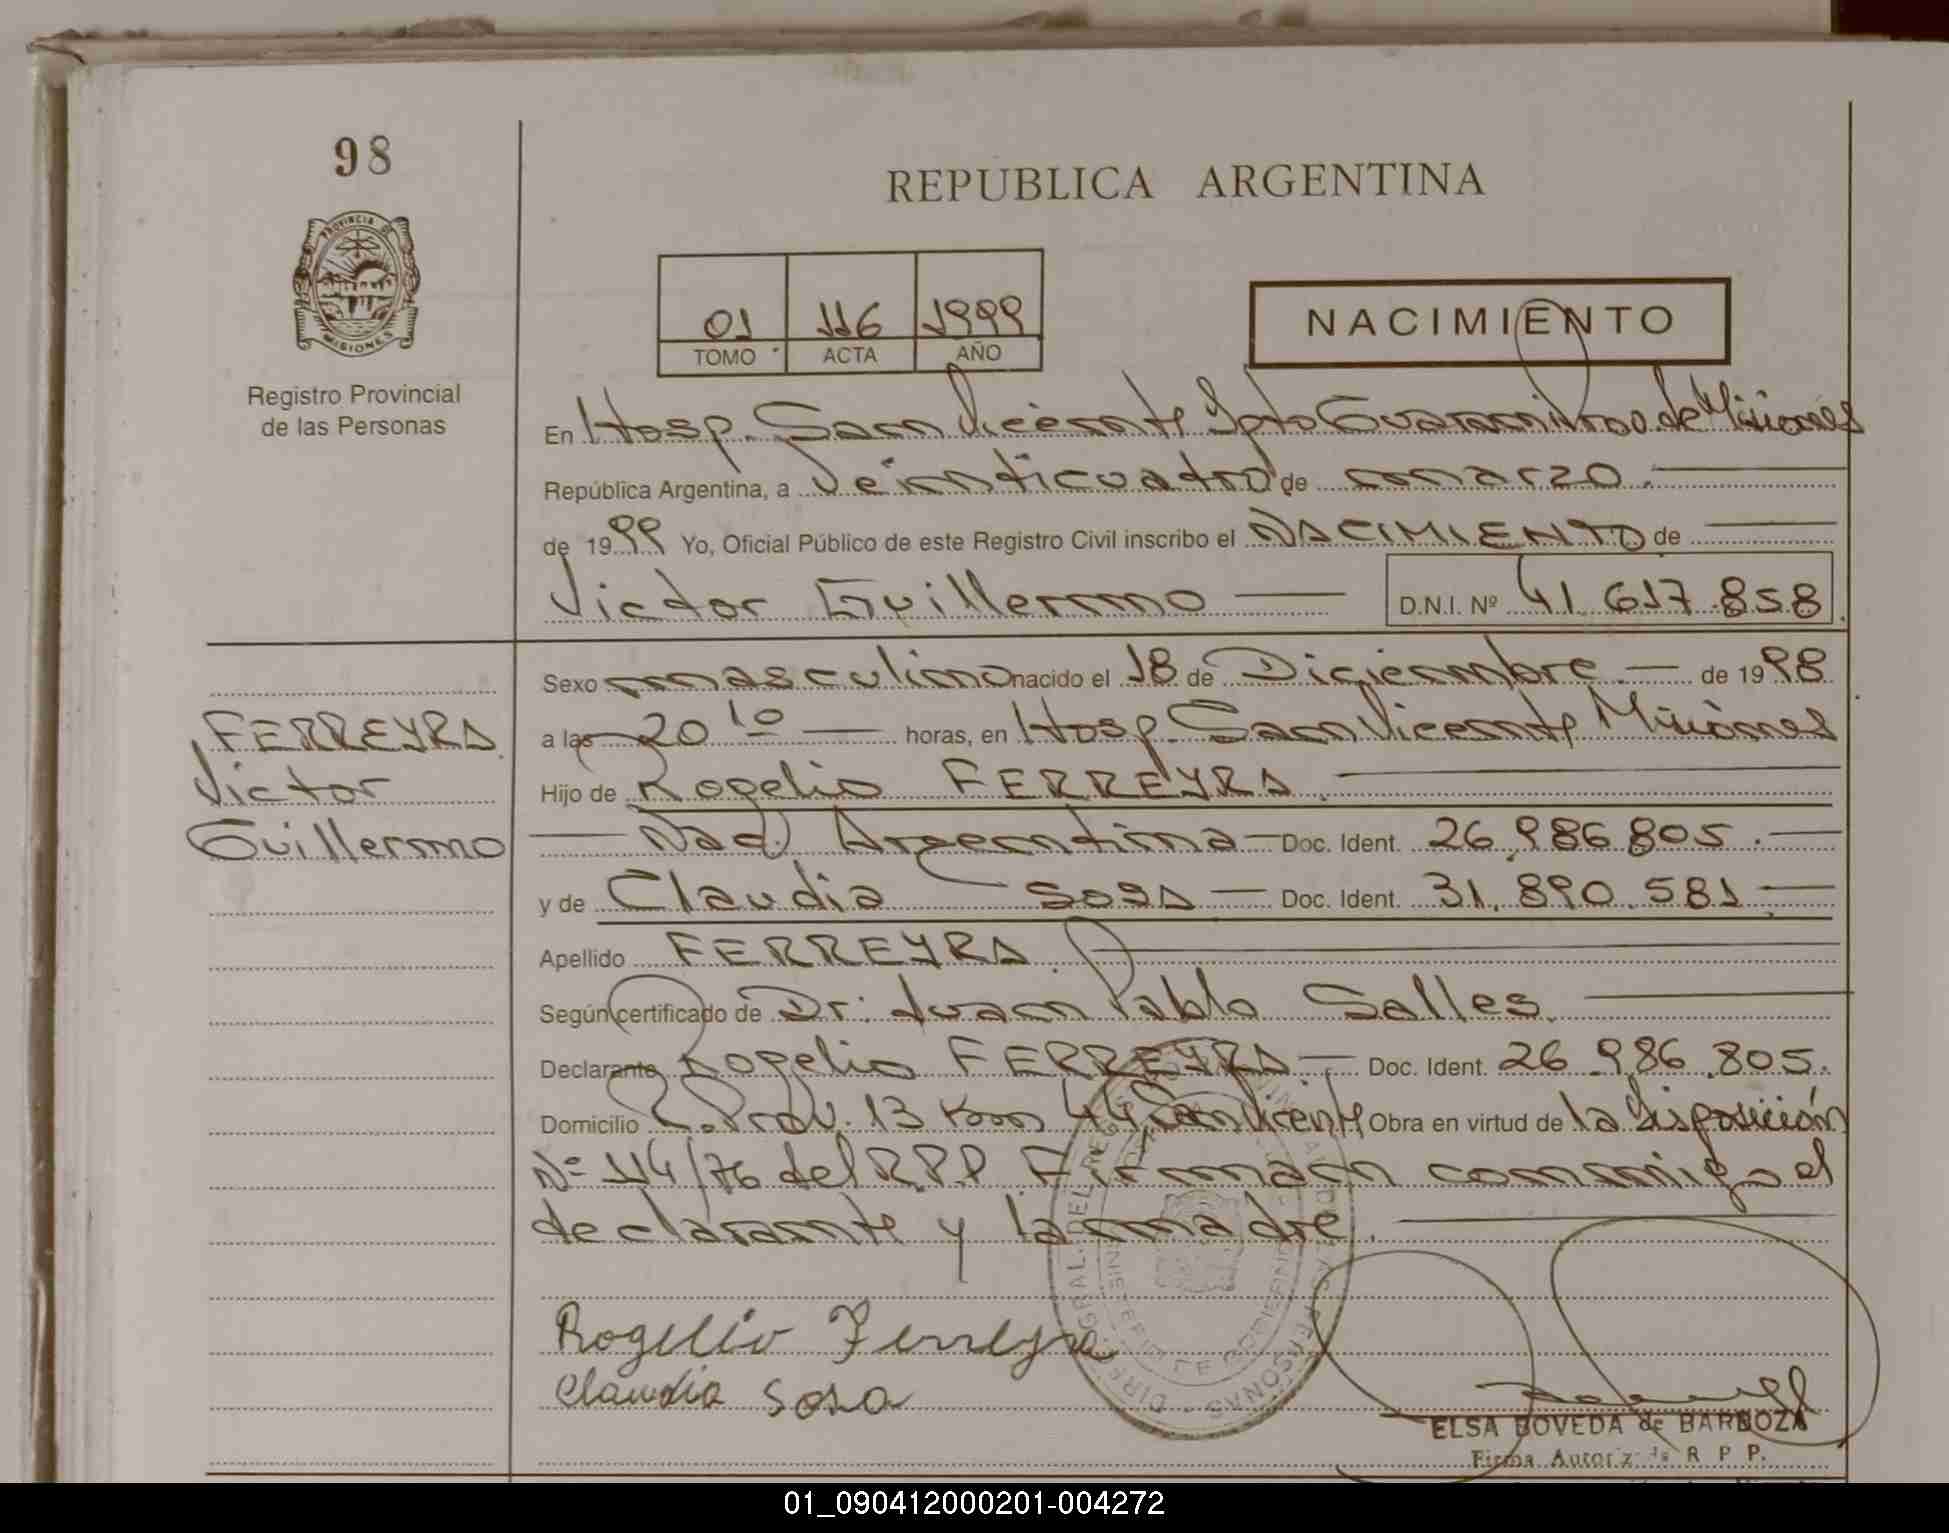 98
REPUBLICA ARGENTINA
PROVINCIA DE
MISIONES
Registro Provincial
de las Personas
01 116 1999
TOMO ACTA AÑO
NACIMIENTO
En Hosp. San Vicente Dpto Guarani Prov. de Misiones
República Argentina, a Veinticuatro de marzo.
de 1999 Yo, Oficial Público de este Registro Civil inscribo el NACIMIENTO de
Victor Guillermo D.N.I. Nº 41.617.858
FERREYRA
Victor
Guillermo
Sexo masculino nacido el 18 de Diciembre de 1998
a las 20 10 horas, en Hosp. San Vicente Misiones
Hijo de Rogelio FERREYRA.
Nac. Argentina Doc. Ident. 26.986.805.
y de Claudia SOSA Doc. Ident. 31.890.581
Apellido FERREYRA.
Según certificado de Dr: Juan Pablo Salles.
Declarante Rogelio FERREYRA Doc. Ident. 26.986.805.
Domicilio R. Prov. 13 Km 44 San Vicente Obra en virtud de la Disposición
Nº 114/76 del R.P.P Firman conmigo el
declarante y la madre.
Rogelio Ferreyra
Claudia Sosa
ELSA BOVEDA de BARBOZA
Firma Autoriz. R P P.
01_090412000201-004272